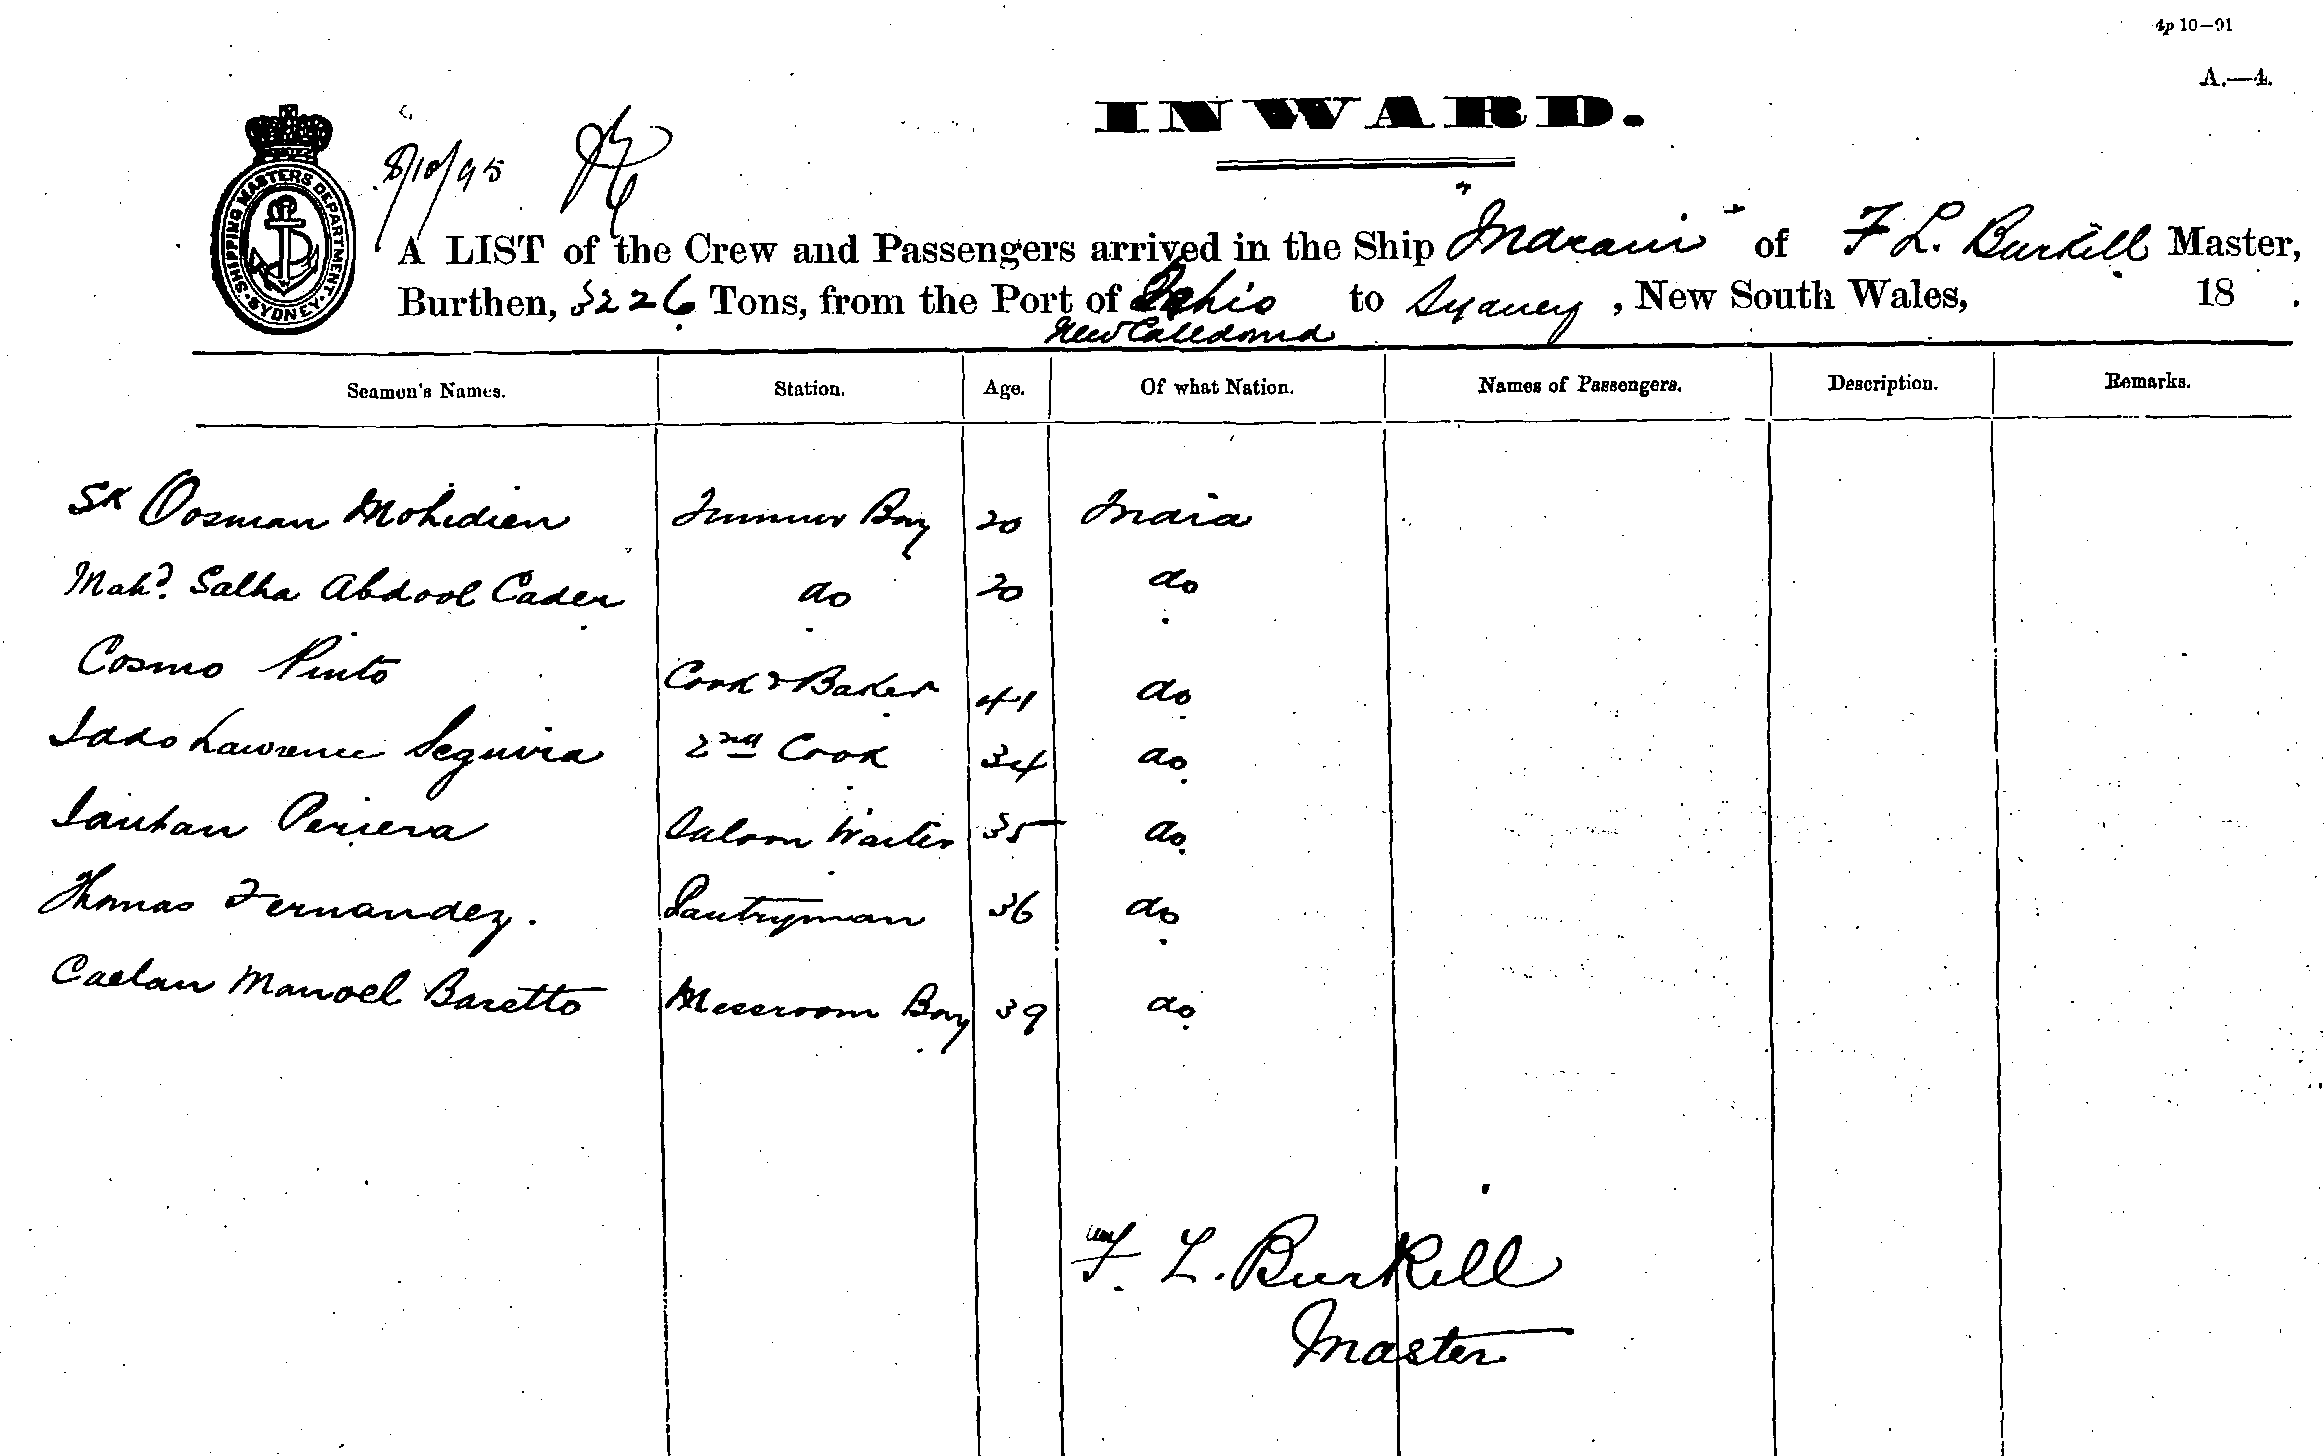 4p 10—91
A.—4.
INWARD.
8/10/95
SHIPPING MASTERS DEPARTMENT. SYDNEY
A LIST of the Crew and Passengers arrived in the Ship "Indrani" of F L. Burkill Master,
Burthen, 3226 Tons, from the Port of Thio to Sydney, New South Wales, 18 .
New Caledonia
Seamen's Names. Station. Age. Of what Nation. Names of Passengers. Description. Remarks.
Sk Oosman Mohidien Trimmer Boy 20 India
Mahd. Salha Abdool Cader do 20 do
Cosmo Pinto Cook & Baker 41 do
Lawrence Seguira 2nd Cook 34 do
Periera Saloon Waiter 35 do
Thomas Fernandez. Pantryman 36 do
Caetan Manoel Baretto Messroom Boy 39 do
F. L. Burkill
Master